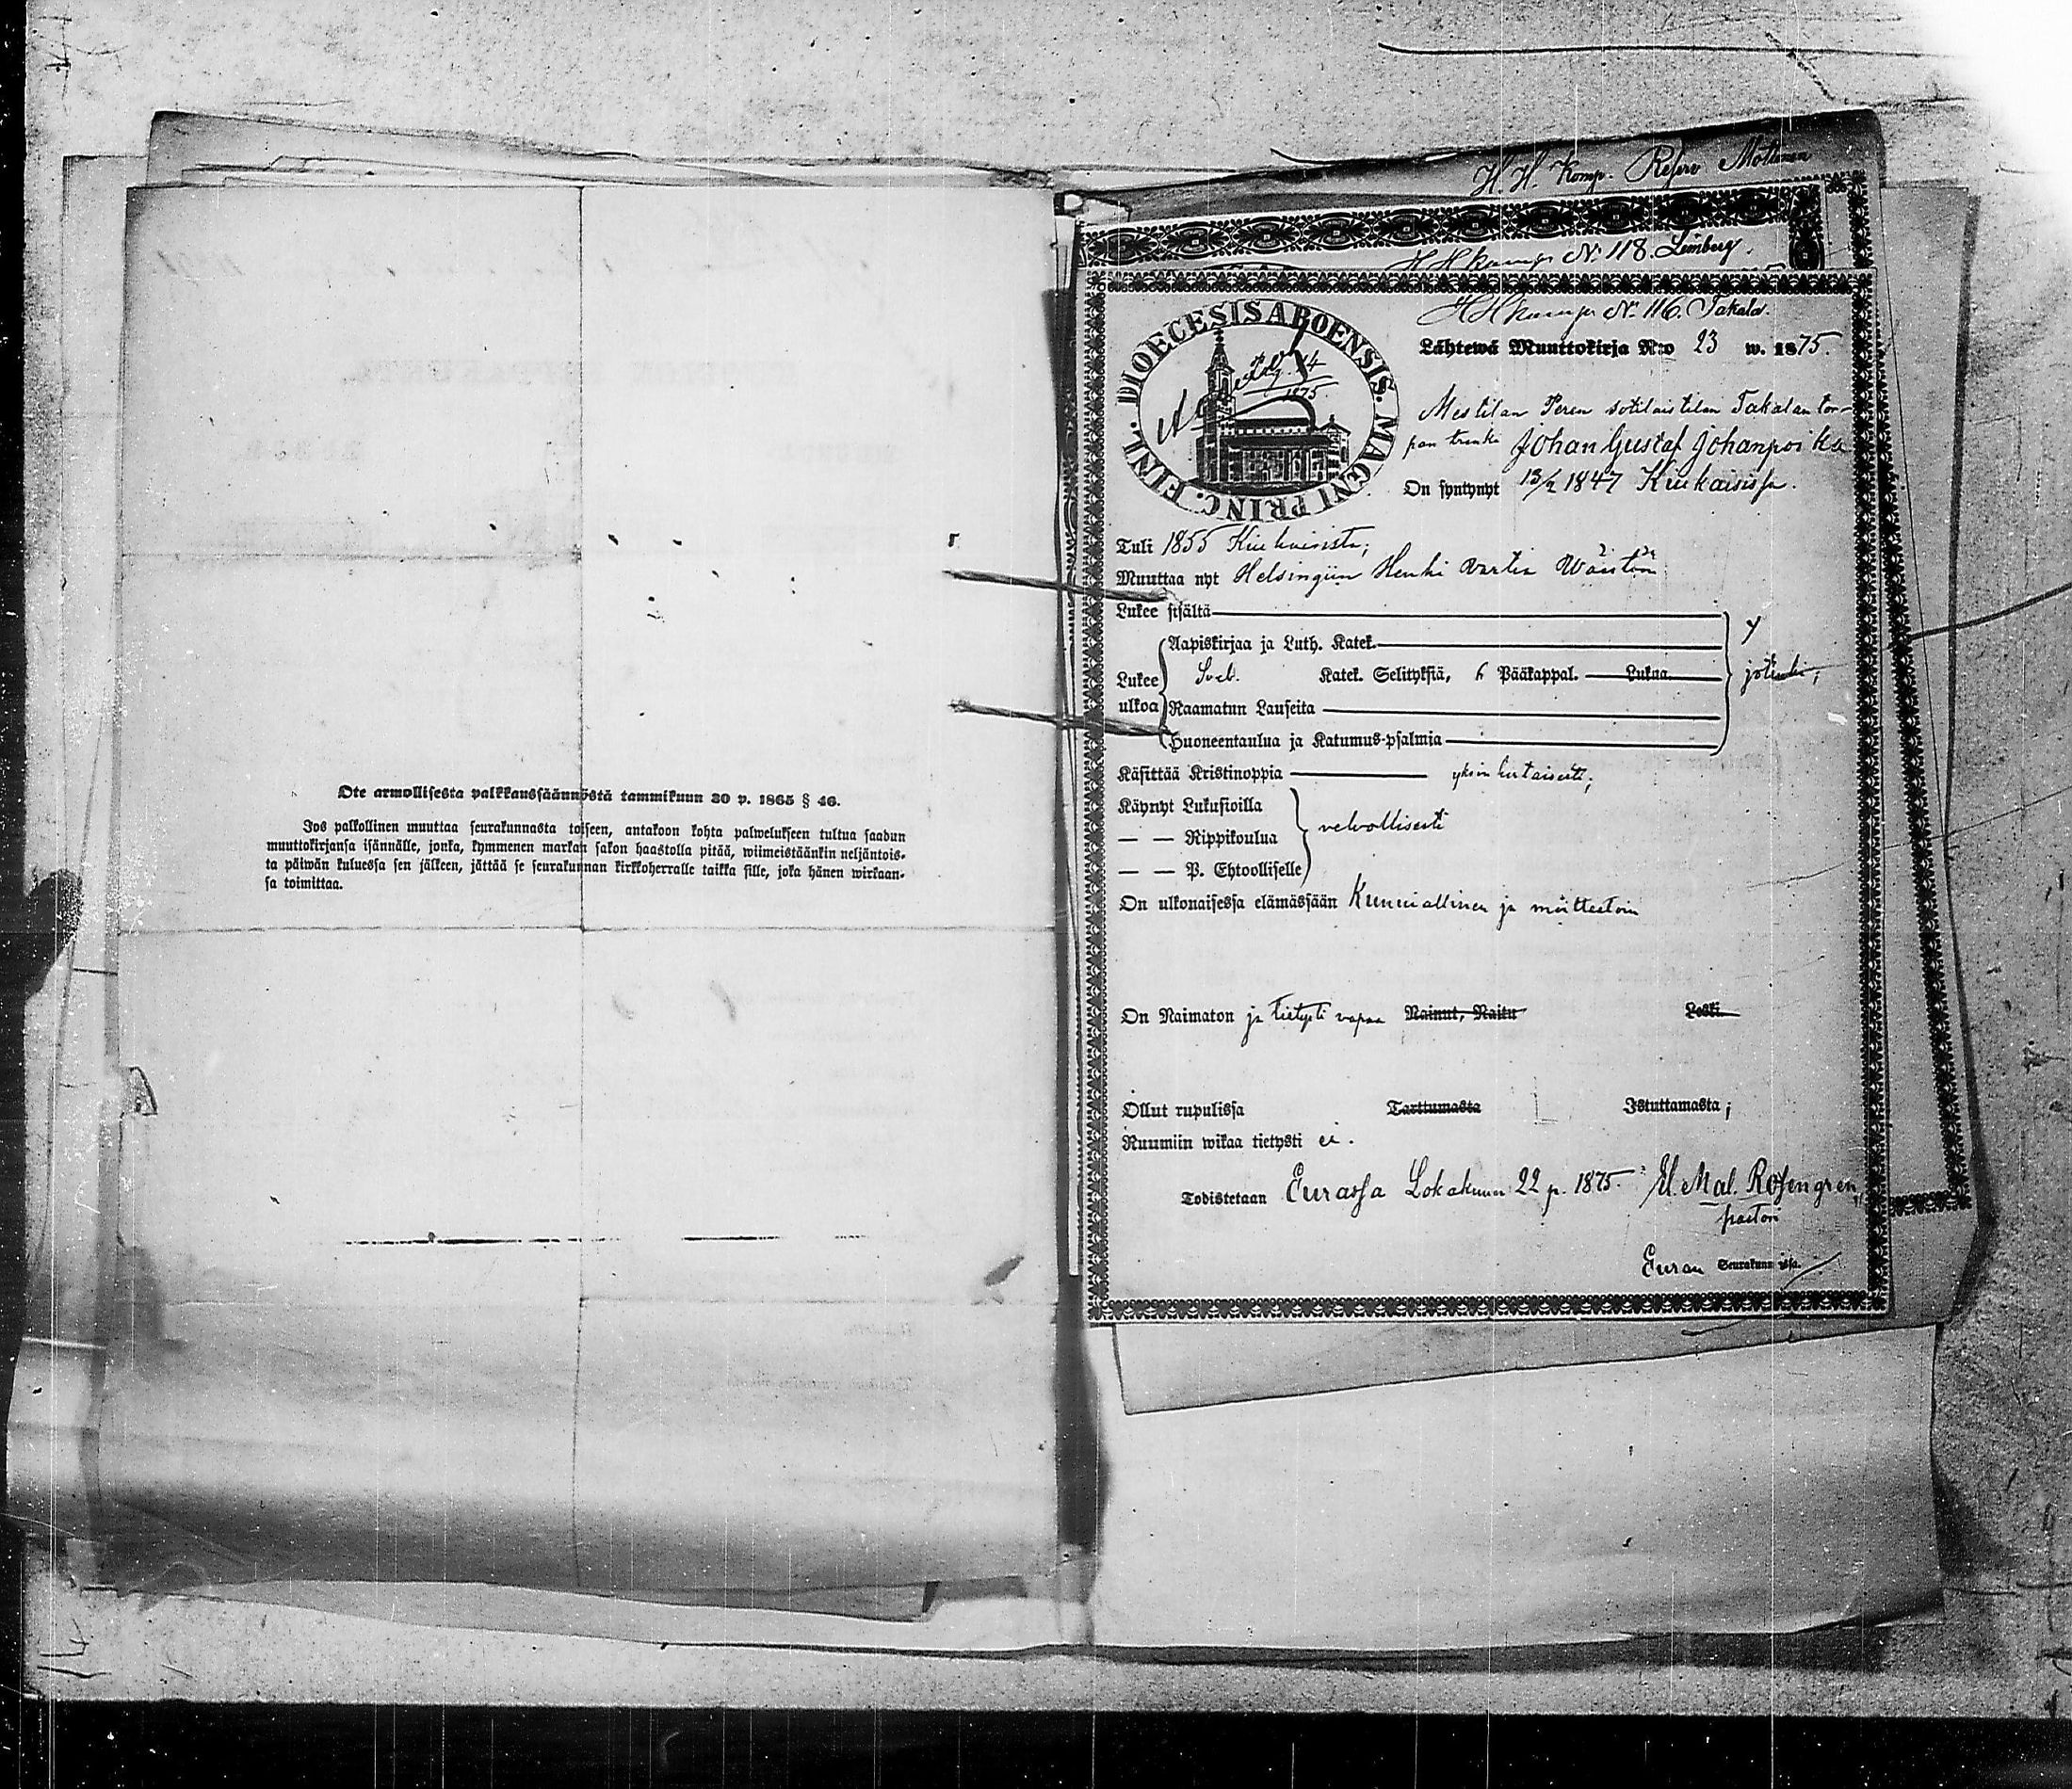 Ote armollisesta palkkaussäännöstä tammikuun 30 p. 1865 § 46.
Jos palkollinen muuttaa seurakunnasta toiseen, antakoon kohta palwelukseen tultua saadun
muuttokirjansa isännälle, jonka, kymmenen markan sakon haastolla pitää, wiimeistäänkin neljäntois-
ta päiwän kuluessa sen jälkeen, jättää se seurakunnan kirkkoherralle taikka sille, joka hänen wirkaan-
sa toimittaa.
H. H. Komp. Reserv Mottonen
H H kamp N: 118. Limberg.
H H kamp N: 116. Takala.
DIOECESIS ABOENSIS. MAGNI PRINC. FINL.
1875
Lähtewä Muuttokirja N:o 23 w. 1875.
Mestilan Peren sotilaistilan Takalan tor-
pan trenki Johan Gustaf Johanpoika
On syntynyt 13/2 1847 Kiukaisissa.
Tuli 1855 Kiukaisista;
Muuttaa nyt Helsingiin Henki Vartia Wäistöön
Lukee sisältä
Aapiskirjaa ja Luth. Katek.
Lukee Sveb. Katek. Selityksiä, 6 Pääkappal. Lukua.
ulkoa Raamatun Lauseita
Huoneentaulua ja Katumus-psalmia
Käsittää Kristinoppia yksinkertaisesti;
Käynyt Lukusioilla
— — Rippikoulua velvollisesti
— — P. Ehtoolliselle
On ulkonaisessa elämässään Kunniallinen ja moitteetoin
On Naimaton ja tietysti vapaa Nainut, Naitu Leski
Ollut rupulissa Tarttumasta Istuttamasta;
Ruumiin wikaa tietysti ei.
Todistetaan Eurassa Lokakuun 22 p. 1875. Mal. Rosengren,
pastori
Euran Seurakunnissa.